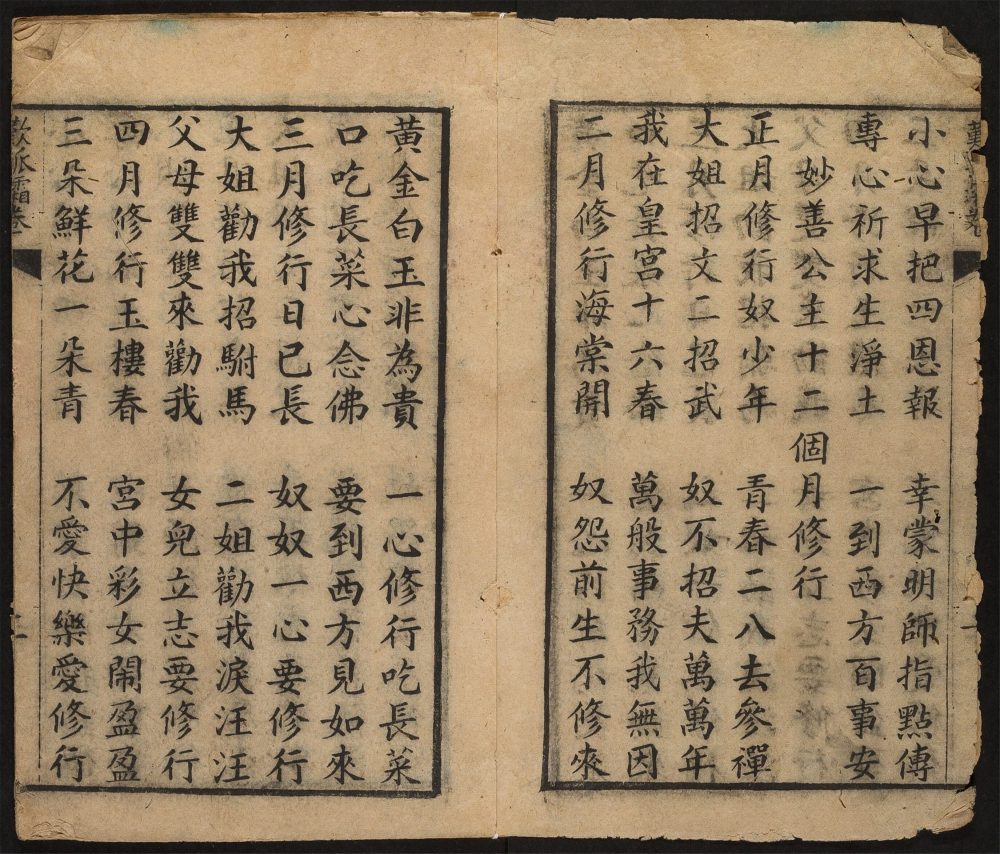 小心早把四恩報 幸蒙明師指點傳
專心祈求生淨土 一到西方百事安
妙善公主十二個月修行
正月修行奴少年 青春二八去參禪
大姐招文二招武 奴不招夫萬萬年
我在皇宮十六春 萬般事務我無因
二月修行海棠開 奴怨前生不修來
黃金白玉非為貴 一心修行吃長菜
口吃長菜心念佛 要到西方見如來
三月修行日已長 奴奴一心要修行
大姐勸我招駙馬 二姐勸我淚汪汪
父母雙雙來勸我 女兒立志要修行
四月修行玉樓春 宮中彩女鬧盈盈
三朵鮮花一朵青 不愛快樂愛修行
霜卷
二